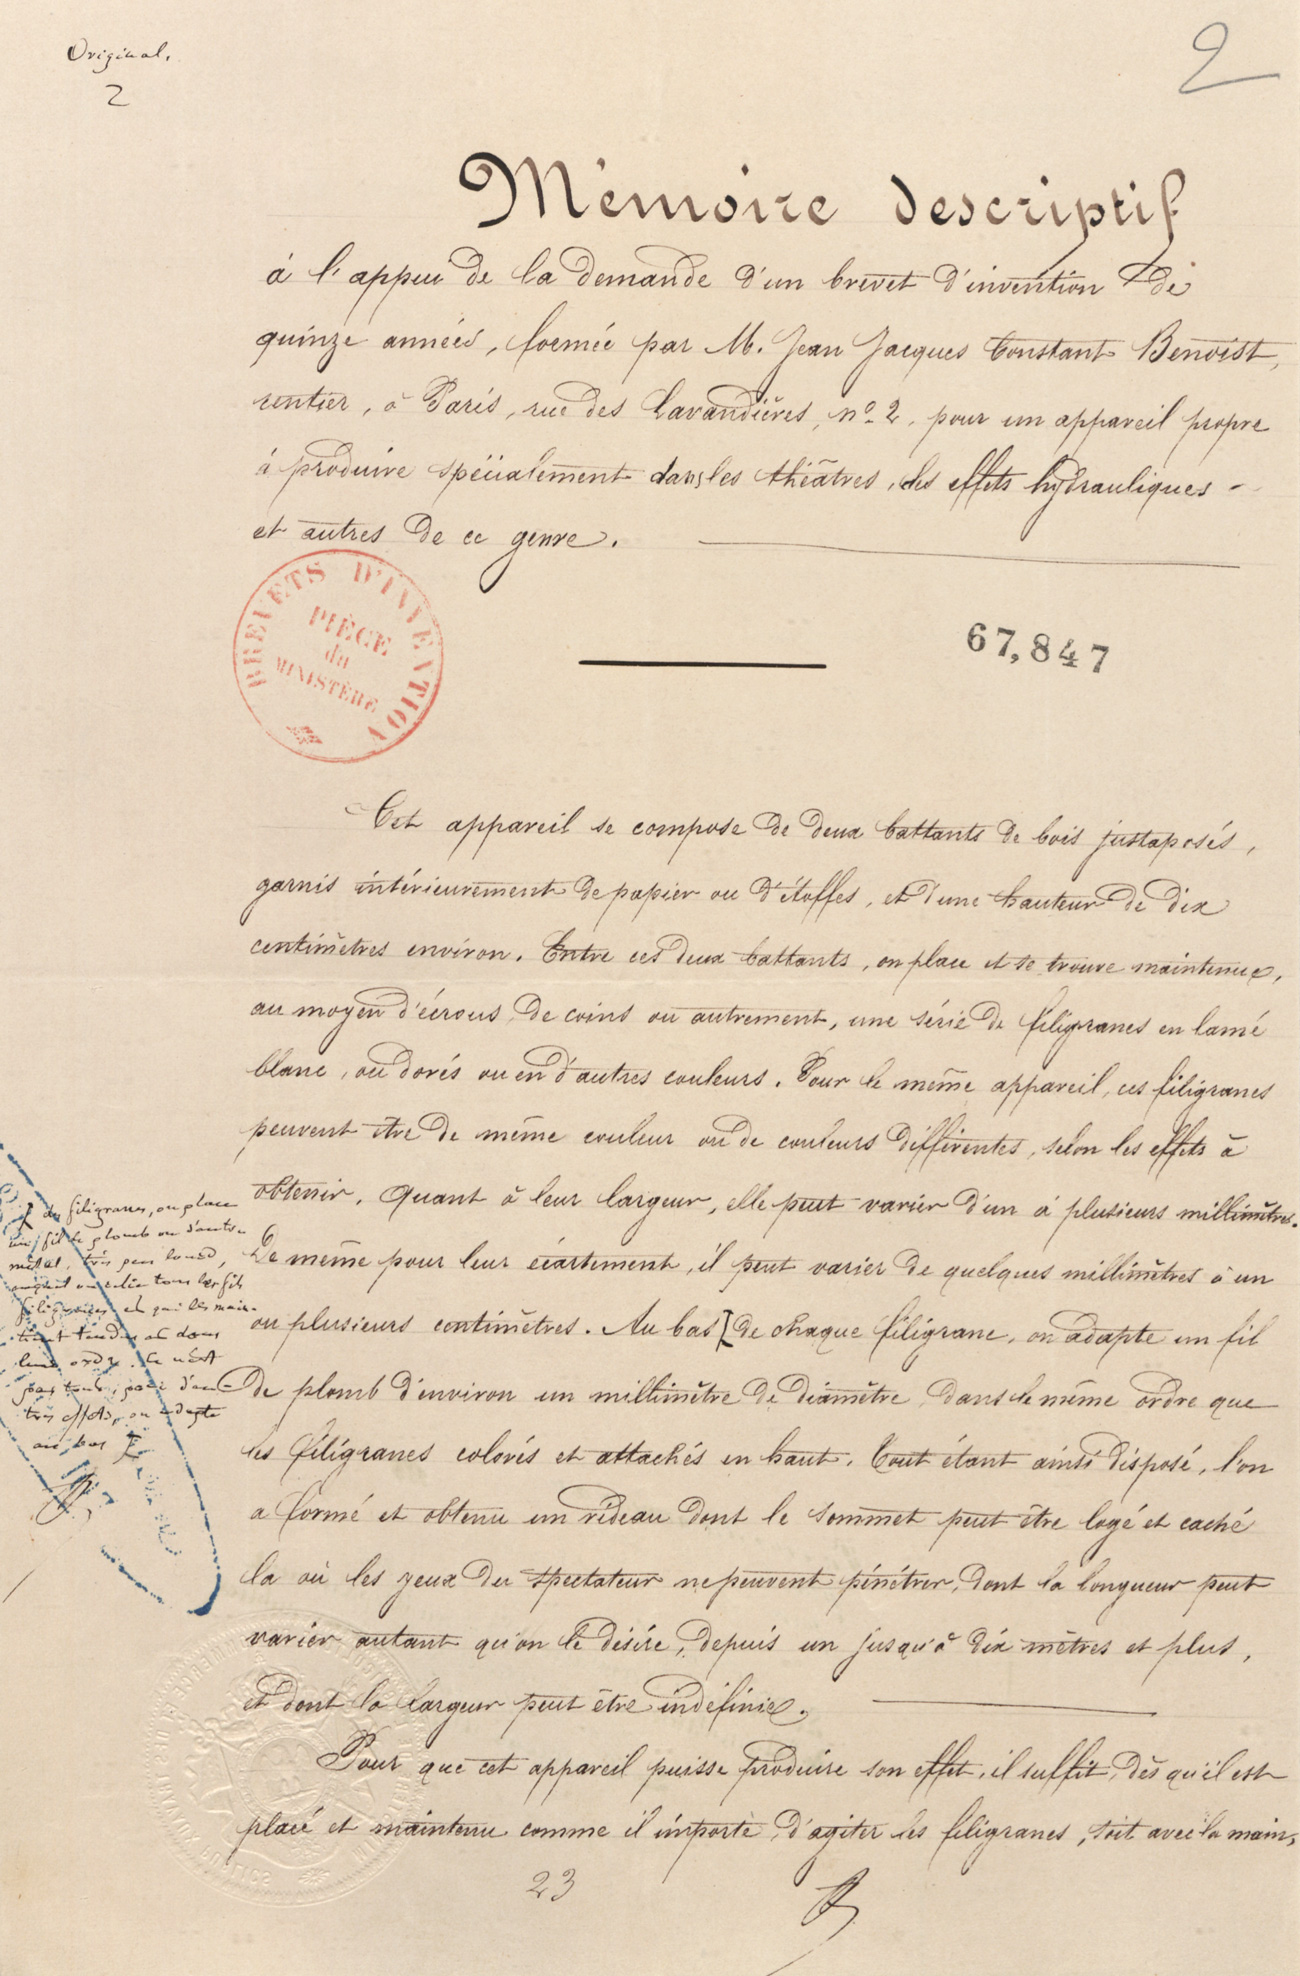 Original.
2
2
Mémoire descriptif
à l'appui de la demande d'un brevet d'invention de
quinze années, formée par M. Jean Jacques Constant Benoist,
rentier, à Paris, rue des Lavandières, no. 2, pour un appareil propre
à produire spécialement dans les théâtres, des effets hydrauliques -
et autres de ce genre.
BREVETS D'INVENTION
PIÈCE
du
MINISTÈRE
67,847
Cet appareil se compose de deux battants de bois justaposés,
garnis intérieurement de papier ou d'étoffes, et d'une hauteur de dix
centimètres environ. Entre ces deux battants, on place et se trouve maintenue,
au moyen d'écrous, de coins ou autrement, une série de filigranes en lamé
blanc, ou dorés ou en d'autres couleurs. Pour le même appareil, ces filigranes
peuvent être de même couleur ou de couleurs différentes, selon les effets à
obtenir. Quant à leur largeur, elle peut varier d'un à plusieurs millimètres.
De même pour leur écartement, il peut varier de quelques millimètres à un
ou plusieurs centimètres. Au bas [ de chaque filigrane, on adapte un fil
de plomb d'environ un millimètre de diamètre, dans le même ordre que
les filigranes colorés et attachés en haut. Tout étant ainsi disposé, l'on
a formé et obtenu un rideau dont le sommet peut être logé et caché
la où les yeux du spectateur ne peuvent pénétrer, dont la longueur peut
varier autant qu'on le désire, depuis un jusqu'à dix mètres et plus,
et dont la largeur peut être indéfinie.
Pour que cet appareil puisse produire son effet, il suffit, dès qu'il est
placé et maintenu comme il importe, d'agiter les filigranes, soit avec la main,
[ des filigranes, on place
un fil de plomb ou d'autre
métal, très peu lourd,
auquel on relie tous les fils
filigranes et qui les main-
tient tendus et dans
leur ordre. Ce n'est
pas tout; pour d'au-
tres effets, on adapte
au bas [
23